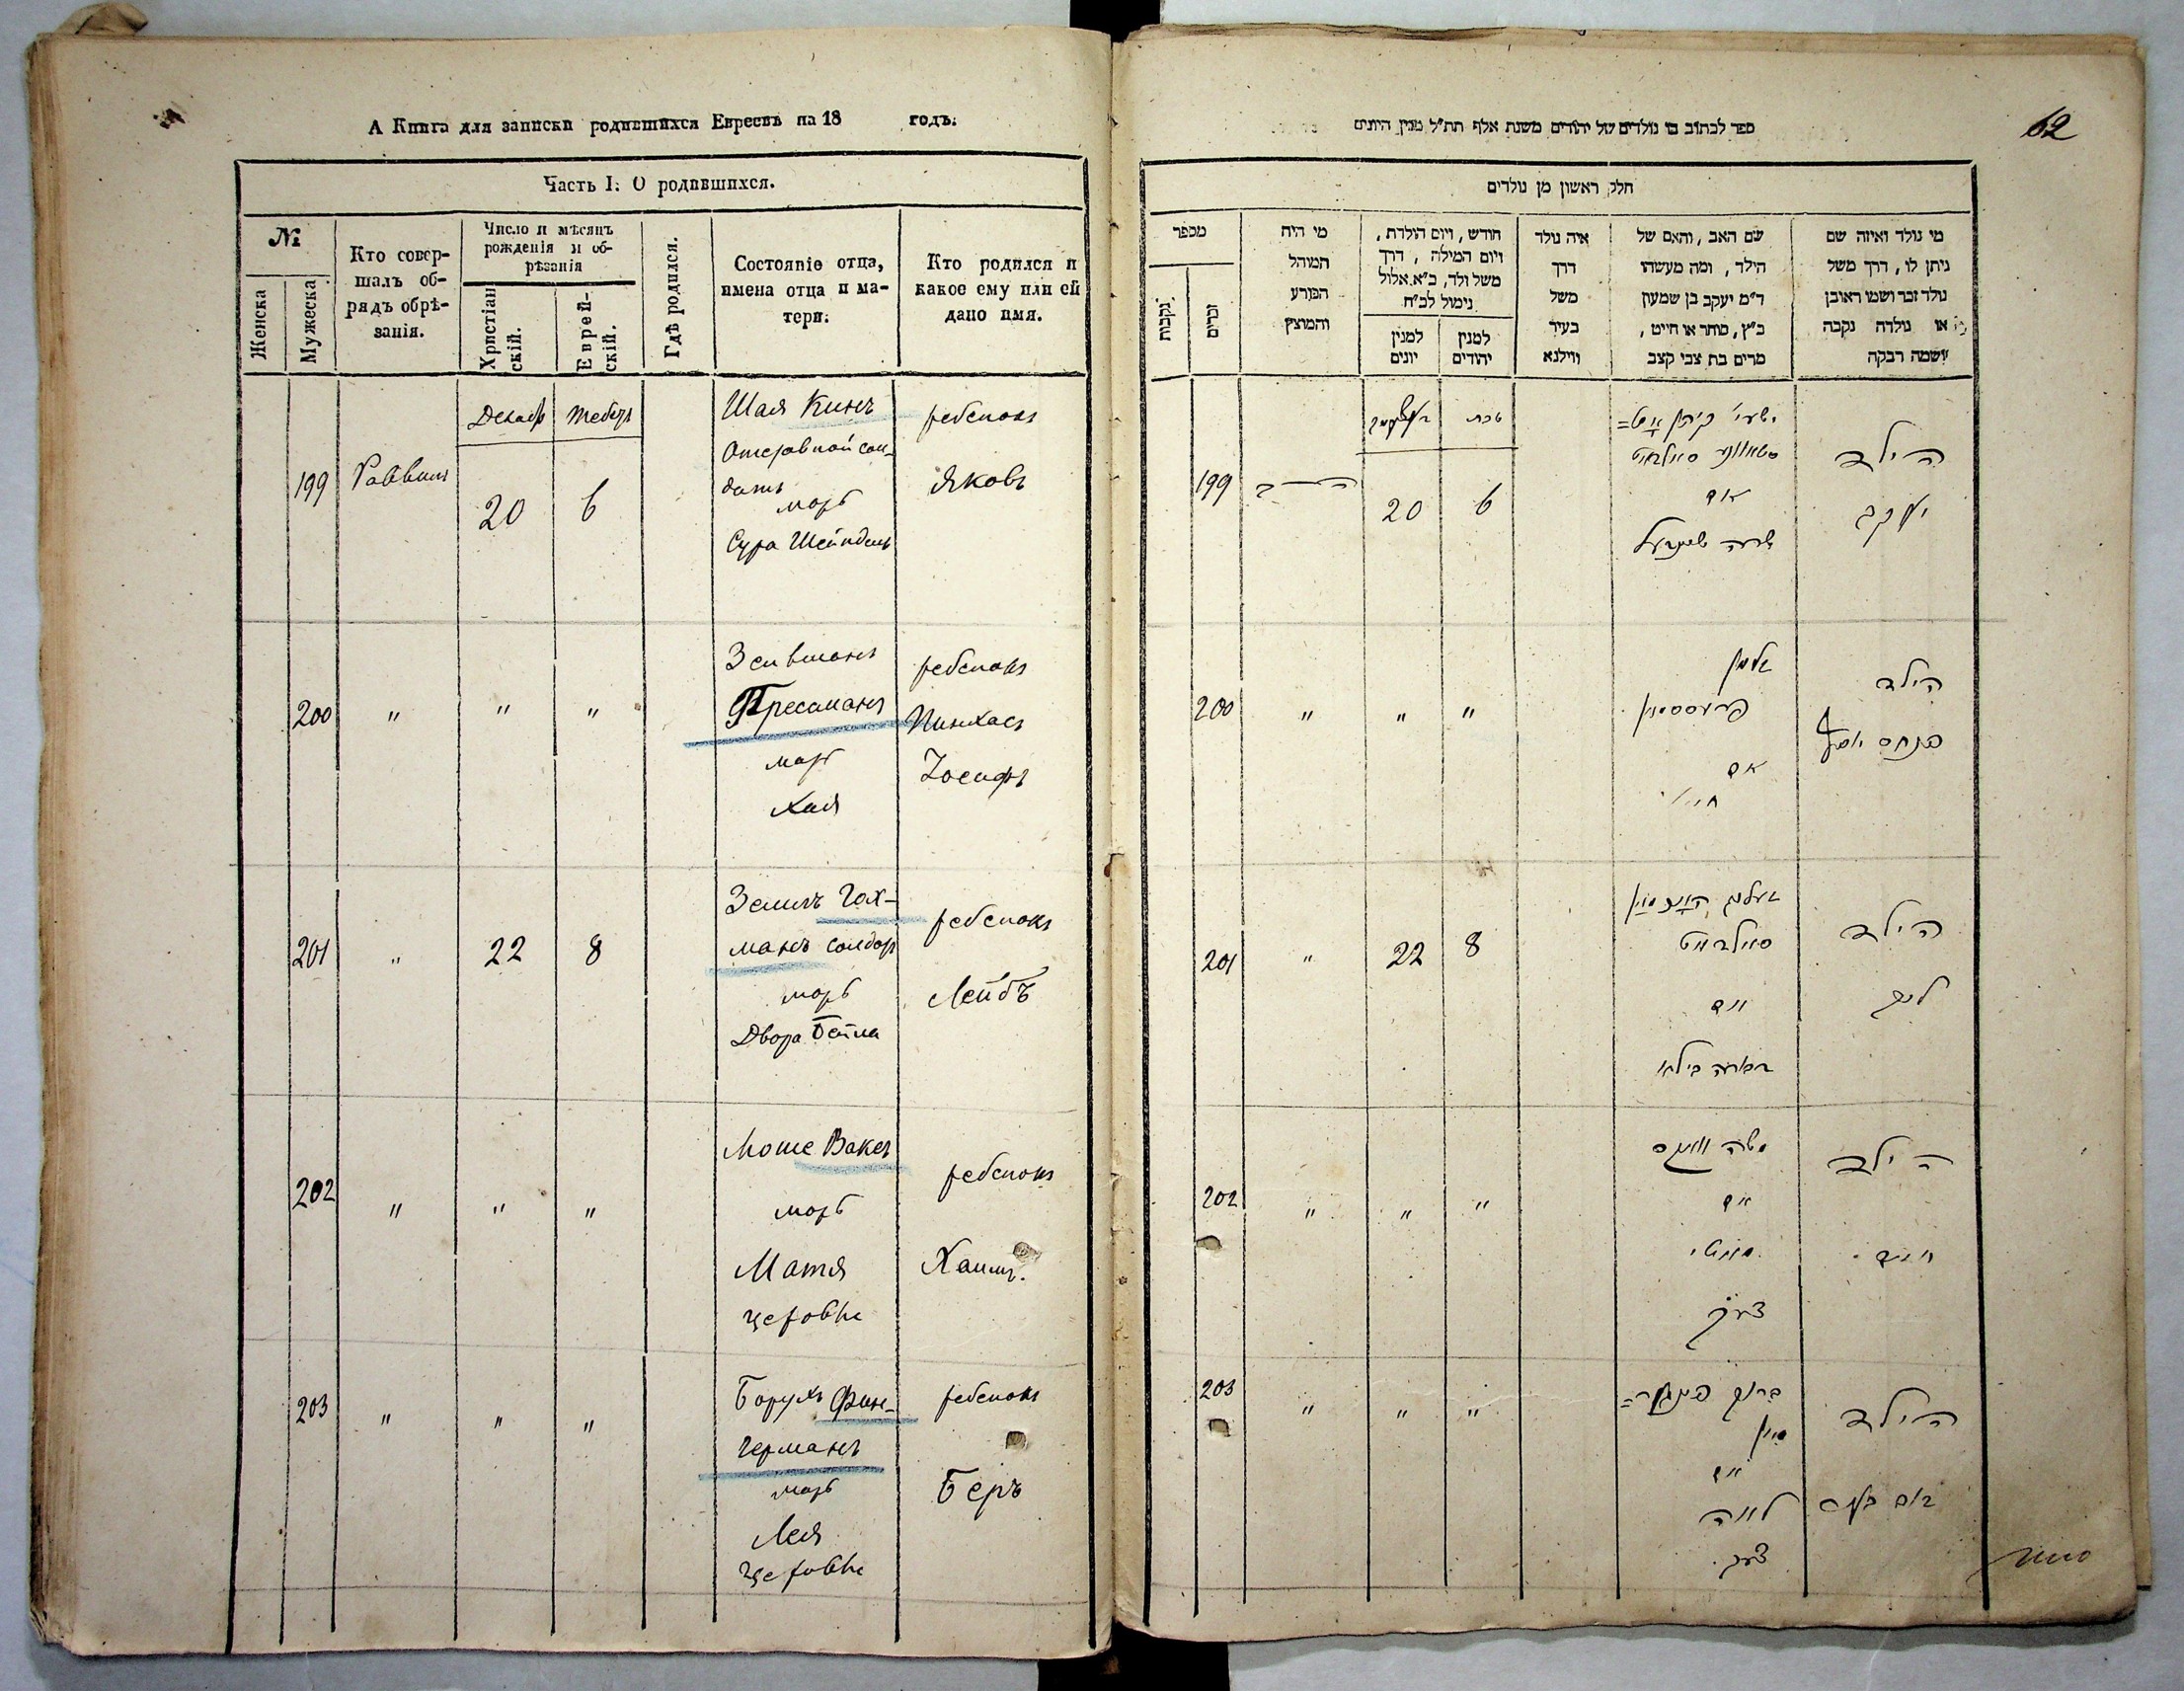 А Книга для записки родившихся Евреевъ на 18 годъ.
Часть I. О родившихся.
№
Женска
Мужеска
Кто совер-
шалъ об-
рядъ обрѣ-
занія.
Число и мѣсяцъ
рожденія и об-
рѣзанія
Христіан
скій.
Еврей-
скій.
Гдѣ родился.
Состояніе отца,
имена отца и ма-
тери.
Кто родился и
какое ему или ей
дано имя.
Декабр
Тебетъ
199
Раввинъ
20
6
Шая Кинъ
Отставной сол-
датъ
мать
Сура Шейндель
ребенокъ
Яковъ
200
"
"
"
Пресманъ
мать
Хая
ребенокъ
Пинхасъ
Іосифъ
201
"
22
8
Гох-
манъ солдатъ
мать
Двора Бейла
ребенокъ
Лейбъ
202
"
"
"
Моше Ваксъ
мать
Матя
ребенокъ
Хаимъ.
203
"
"
"
Борухъ Фин-
германъ
мать
Лея
ребенокъ
Беръ
62
ספר לכתוב בו נולדים של יהודים משנת אלף תת״ל מנין היונים
חלק ראשון מן נולדים
מספר
נקבות
זכרים
מי היה
המוהל
הפורע
והמוצץ
חודש, ויום הולדת,
ויום המילה, דרך
משל ולד, כ״א אלול
נימול לכ״ח
למנין
יונים
למנין
יהודים
איה נולד
דרך
משל
בעיר
ווילנא
שם האב, והאם של
הילד, ומה מעשהו
ד״מ יעקב בן שמעון
כ״ץ, סוחר או חייט,
מרים בת צבי קצב
מי נולד ואיזה שם
ניתן לו, דרך משל
נולד זכר ושמו ראובן
או נולדה נקבה
ושמה רבקה
טבת
199
הרב
20
6
אם
שרה שיינדעל
הילד
יעקב
200
"
"
"
זלמן
פרעססמאן
אם
חיי'
הילד
פנחס יוסף
201
"
22
8
סאלדאט
אם
דבורה ביילא
הילד
ליב
202
"
"
"
משה וואקס
אם
הילד
חיים
203
"
"
"
ברוך פינגער=
מאן
אם
לאה
הילד
דוב בער